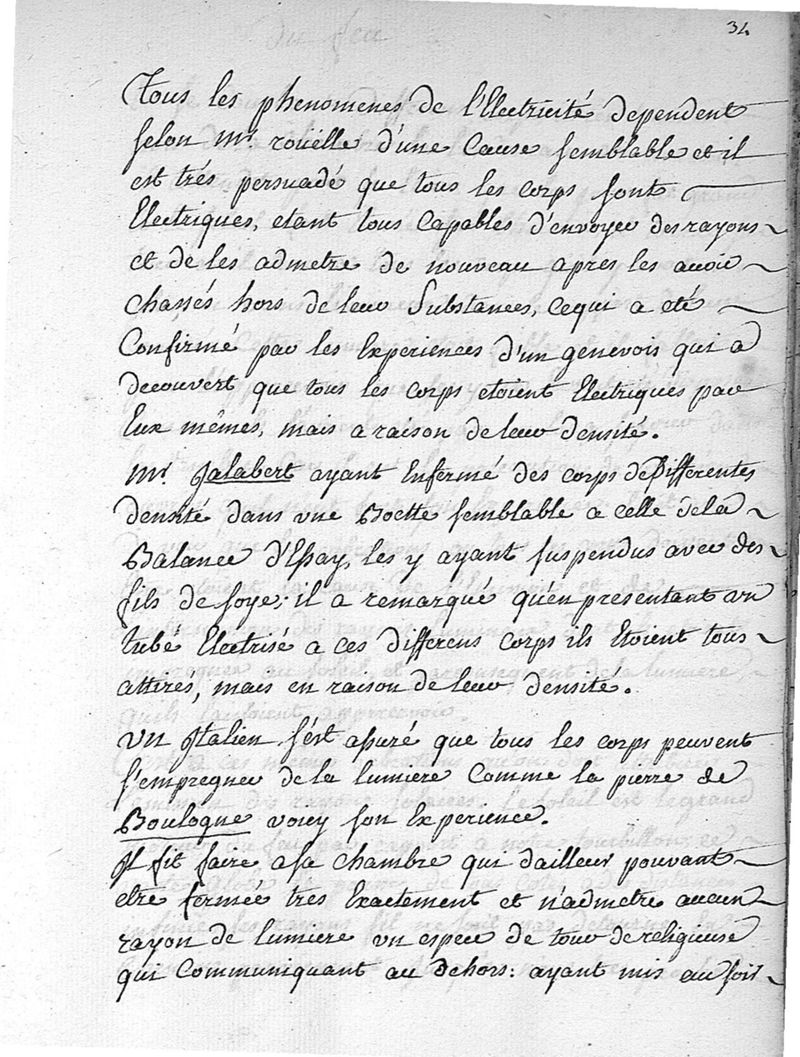 34
Tous les phenomenes de l'Electricité dependent
selon Mr. roüelle d'une Cause semblable et il
est trés persuadé que tous les corps sont
Electriques, etant tous Capables d'envoyer des rayons
et de les admetre de nouveau apres les avoir
chassés hors de leur Substances, cequi a eté
Confirmé par les Experiences d'un genevois qui a
decouvert que tous les corps etoient Electriques par
Eux mêmes, mais a raison de leur densité.
Mr. Jalabert ayant Enfermé des corps de Differentes
densité dans une Boette semblable a celle dela
Balance d'Essay, les y ayant suspendus avec des
fils de soye; il a remarqué qu'en presentant un
tubé Electrisé a ces differens corps ils Etoient tous
attirés, mais en raison de leur densité.
Un Italien s'est assuré que tous les corps peuvent
s'empregner de la lumiere Comme la pierre de
Boulogne voicy son Experience.
Il fit faire a sa chambre qui d'ailleur pouvant
etre fermée tres Exactement et n'admetre aucun
rayon de lumiere un espece de tour de religieuse
qui Communiquant au dehors: ayant mis au soil